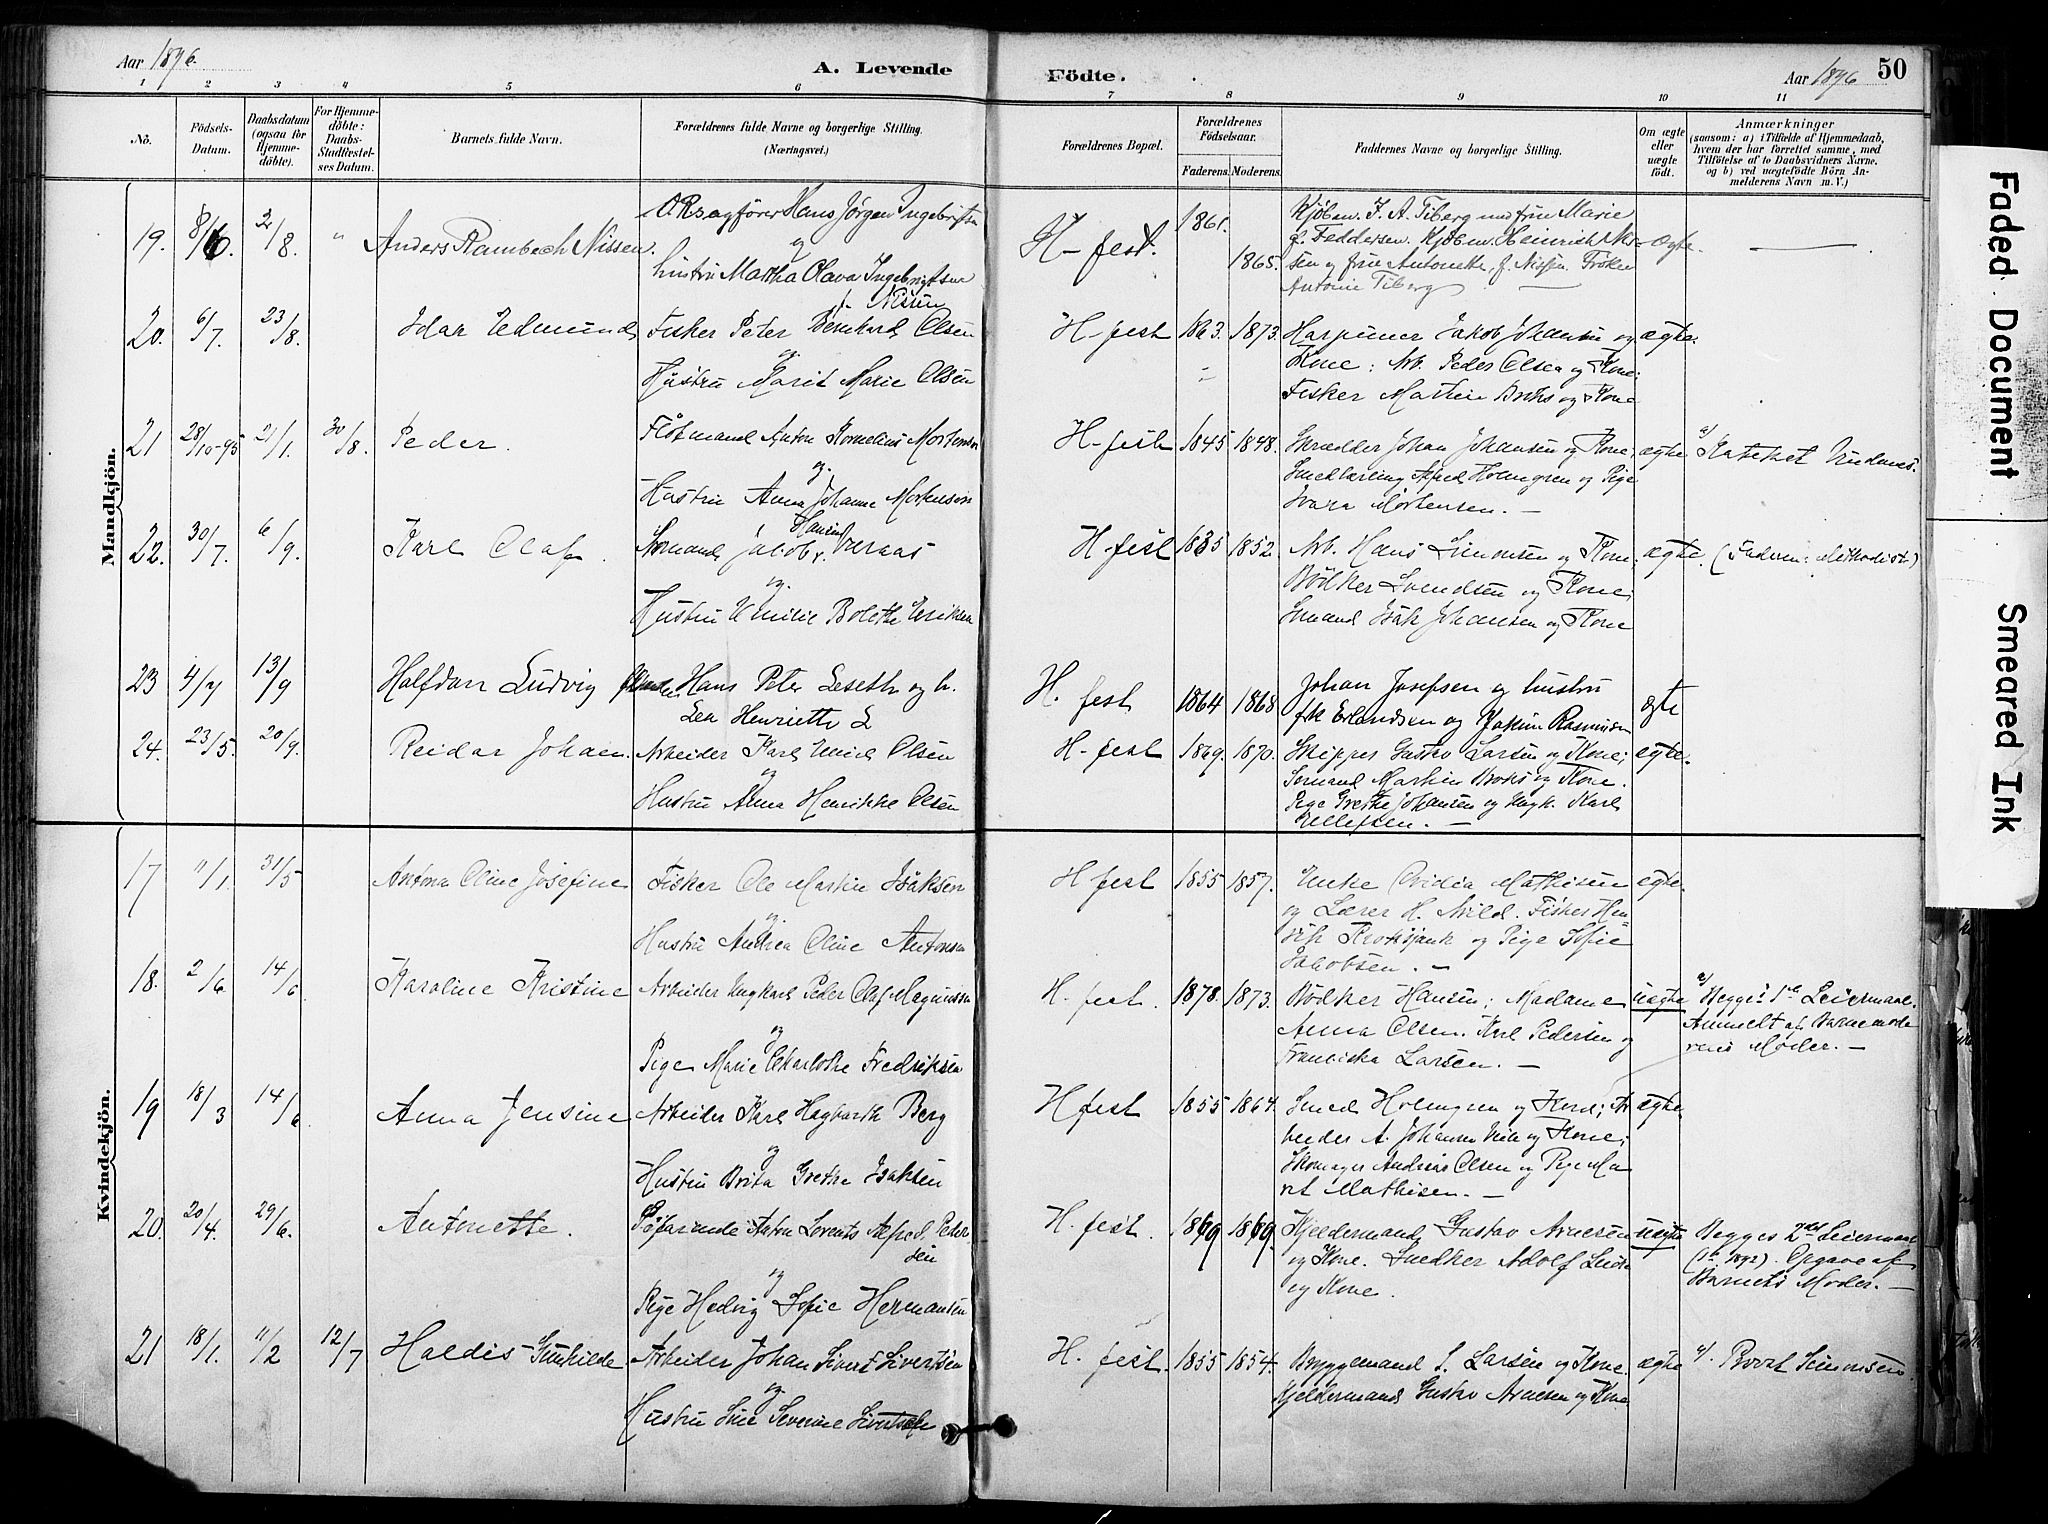 Aar 1896.
A. Levende
Födte.
Aar 1896
50
1 2 3 4 5 6 7 8 9 10 11
No.
Födsels-
Datum.
Daabsdatum
(ogsaa for
Hjemme-
døbte).
For Hjemme-
døbte:
Daabs-
Stadfæstel-
ses Datum.
Barnets fulde Navn.
Forældrenes fulde Navne og borgerlige Stilling.
(Næringsvei.)
Forældrenes Bopæl.
Forældrenes
Födselsaar.
Faderens. Moderens.
Faddernes Navne og borgerlige Stilling.
Om ægte
eller
uægte
født.
Anmærkninger
(saasom: a) i Tilfælde af Hjemmedaab,
hvem der har forrettet samme, med
Tilföielse af to Daabsvidners Navne,
og b) ved uægtefödte Börn An-
melderens Navn m. V.)
Mandkjön.
19. 8/6 2/8 " Anders Rambech Nissen.
ORsagfører Hans Jörgen Ingebrigtsen
og
hustru Martha Olava Ingebrigtsen
f. Nissen
H-fest. 1861. 1865.
Kjøbm. J. A. Tiberg med frue Marie
f. Feddersen. Kjøbm. Heinrich Nis-
sen og frue Antonette, f. Nissen. Frøken
Antonie Tiberg
Ægte
20. 6/7 23/8 Idar Edmund
Fisker Peter Bernhard Olsen
og
Hustru Marit Marie Olsen
H-fest 1863. 1873.
Harpuner Jakob Johansen og
Kone; Arb. Peder Olsen og Kone;
Fisker Mathin Boks og Kone
ægte.
21 28/10-95 21/1. 30/8. Peder.
Flötmand Anton Kornelius Mortensen
og
Hustru Anna Johanne Mortensen
H-fest 1845 1848.
Skrædder Johan Johansen og Kone,
Smedlærling Alfred Holmgren og Pige
Ivara Mortensen.
ægte
a/ Kateket
22. 30/7. 6/9. Karl Olaf.
Sömand Jakob Hansen
og
Hustru Emilie Bolette Eriksen
H-fest 1835 1852.
Arb. Hans Simonsen og Kone.
Bödker Svendsen og Kone;
Sömand Isak Johansen og Kone
ægte. (Faderen: Methodist)
23 4/7 13/9 Halfdan Ludvig
Hans Peter Leseth og h.
Lea Henriette L
H. fest 1864 1868
Johan Josefsen og hustru
frk Erlandsen og Joakim Rasmussen
ægte
24. 23/5. 20/9. Reidar Johan.
Arbeider Karl Emil Olsen
og
Hustru Anna Henrikke Olsen
H-fest 1869. 1870.
Skipper Gustav Larsen og Kone;
Sömand Martin Boks og Kone.
Pige Grethe Johansen og Ungk. Karl
Ellefsen.
ægte.
Kvindekjön.
17 11/1. 31/5 Antona Oline Josefine
Fisker Ole Martin Isaksen
og
Hustru Andrea Oline Antonsen
H fest 1855 1857.
Enke Ovidia Mathisen
og Lærer H. Arild. Fisker Hen-
rik og Pige Sofie
Jakobsen.
ægte.
18. 2/6 14/6 Karoline Kristine
Arbeider Ungkarl Peder Olaf Magnussen
og
Pige Marie Charlotte Fredriksen
H. fest. 1878. 1873.
Bödker Hansen; Madame
Anna Olsen. Karl Pedersen og
Franciska Larsen.
uægte
a/ Begges 1ste Leiermaal.
Anmeldt af Barnemode
rens Moder.
19 18/3 14/6 Anna Jensine
Arbeider Karl Hagbarth Berg
og
Hustru Brita Grethe Isaksen
H fest 1855 1864.
Smed Holmgren og Kone; Ar
beider A. Johansen og Kone;
Skomager Andreas Olsen og Pige Ma
rit Mathisen.
ægte.
20. 20/4. 29/6. Antonette.
Söfarende Anton Lorents Alfred Peder-
sen
og
Pige Hedvig Sofie Hermansen
H. fest. 1869 1869.
Kjeldermand Gustav Arnesen
og Kone. Snedker Adolf
og Kone.
uægte
Begges 2det Leiermaal
(1ste 1892). Opgave af
Barnets Moder.
21 18/1. 11/2 12/7 Haldis Gunhilde.
Arbeider Johan Sivert Sivertsen
og
Hustru Sine Severine Sivertsen
H. fest. 1855 1854.
Bryggemand S. Larsen og Kone.
Kjeldermand Gustav Arnesen og Kone
ægte
a/. Simonsen.
Faded Document
Smeared Ink